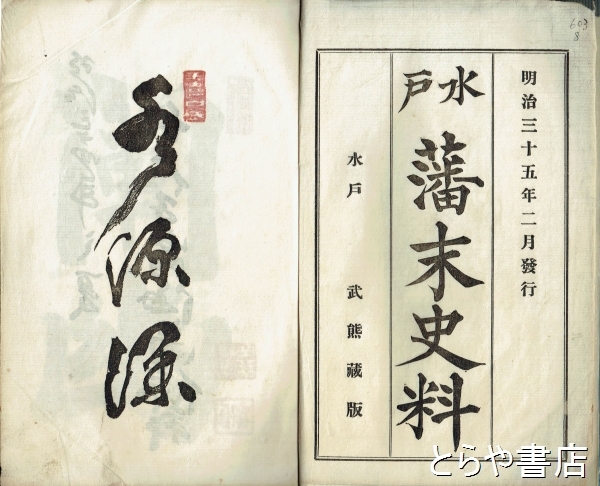 明治三十五年二月發行
水戸
藩末史料
水戸 武熊藏版
源深
とらや書店